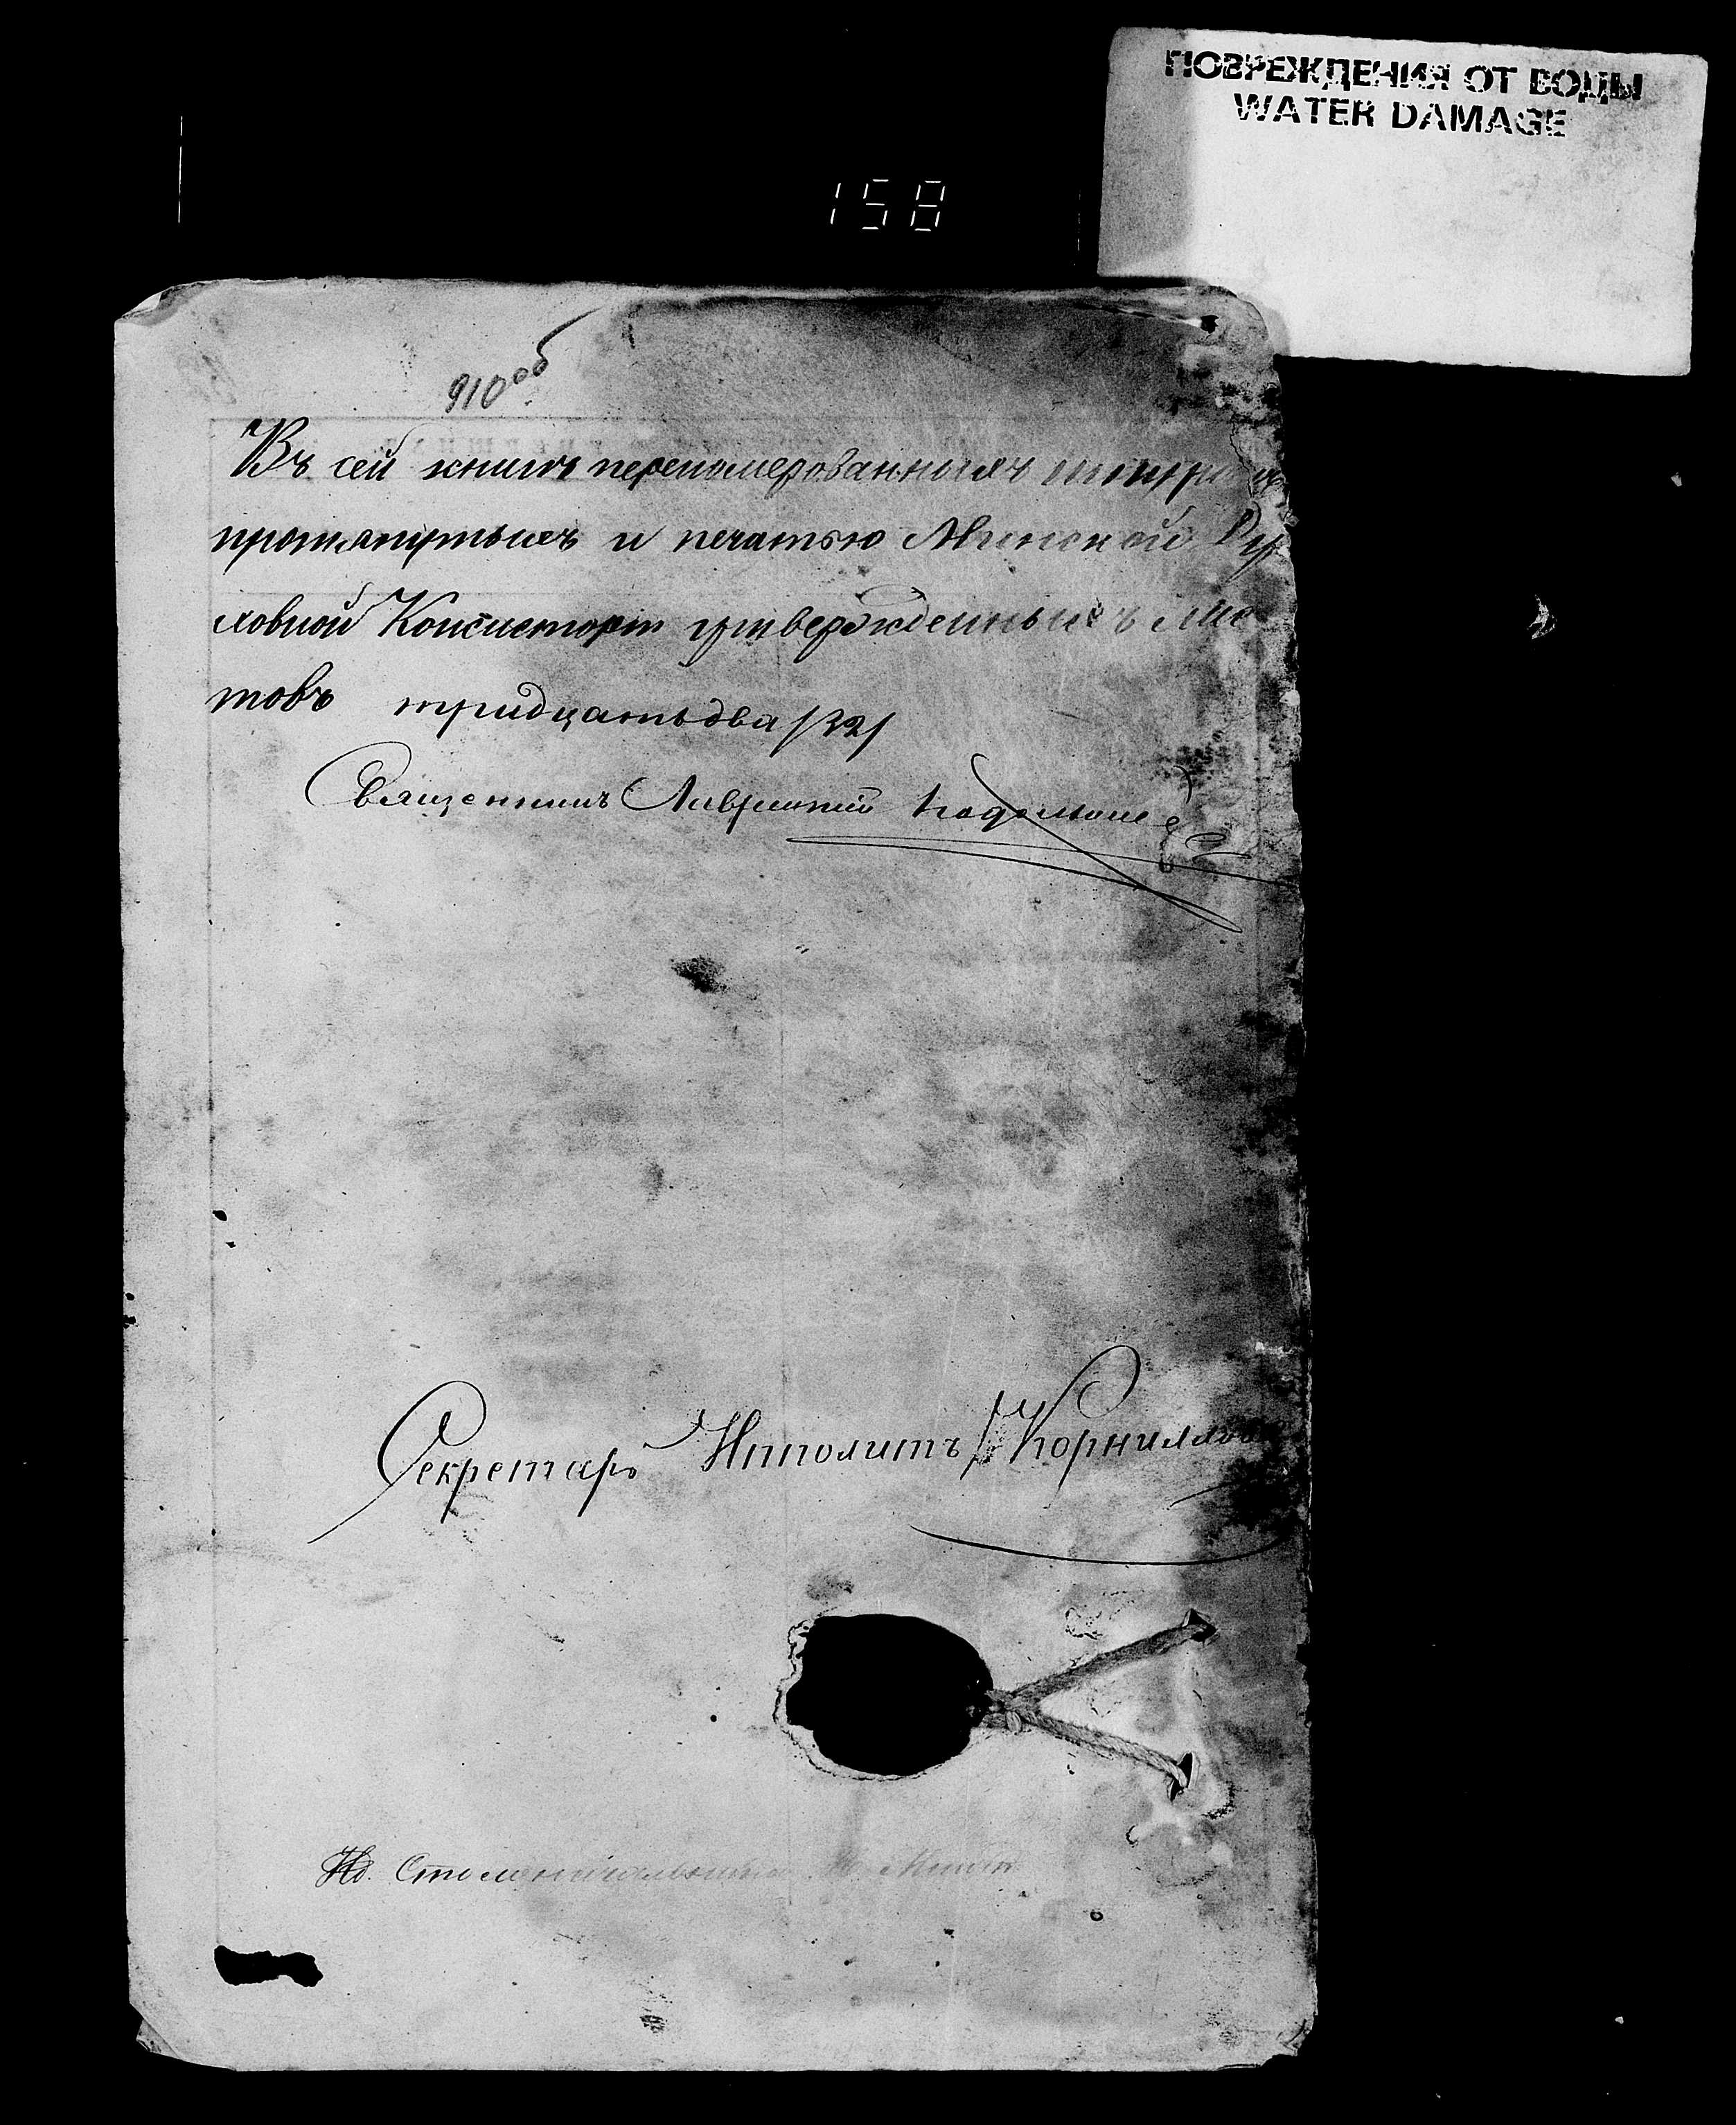 ПОВРЕЖДЕНИЯ ОТ ВОДЫ
WATER DAMAGE
158
910об
Въ сей книгѣ перепомерованныхъ шнуромъ
протянутыхъ и печатью Минской Ду
ховной Консисторіи утвержденныхъ лис
товъ тридцать два /32/
Священникъ Лаврентій
Секретарь Ипполитъ Корниловъ
И.д. Столоначальника